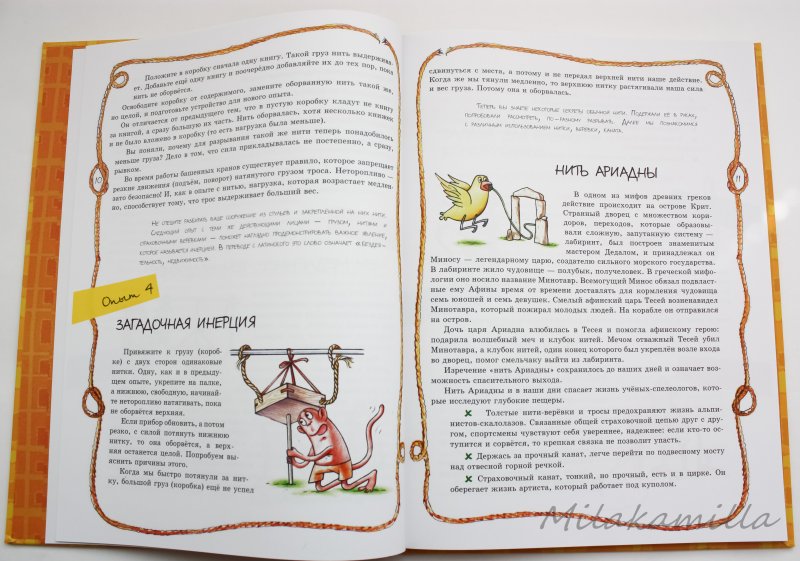 Положите в коробку сначала одну книгу. Такой груз нить выдержива-
ет. Добавьте ещё одну книгу и поочерёдно добавляйте их до тех пор, пока
нить не оборвётся.
Освободите коробку от содержимого, замените оборванную нить такой же,
но целой, и подготовьте устройство для нового опыта.
Он отличается от предыдущего тем, что в пустую коробку кладут не книгу
за книгой, а сразу большую их часть. Нить оборвалась, хотя несколько книжек
и не было вложено в коробку (то есть нагрузка была меньше).
Вы поняли, почему для разрывания такой же нити теперь понадобилось
меньше груза? Дело в том, что сила прикладывалась не постепенно, а сразу,
рывком.
Во время работы башенных кранов существует правило, которое запрещает
резкие движения (подъём, поворот) натянутого грузом троса. Неторопливо —
зато безопасно! И, как в опыте с нитью, нагрузка, которая возрастает медлен-
но, способствует тому, что трос выдерживает больший вес.
10
Не спешите разбирать ваше сооружение из стульев и закреплённой на них нити.
Следующий опыт с тем же действующими лицами — грузом, нитями и
страховочными верёвками — поможет наглядно продемонстрировать важное явление,
которое называется инерцией. В переводе с латинского это слово означает «бездея-
тельность, недвижность».
Опыт 4
ЗАГАДОЧНАЯ ИНЕРЦИЯ
Привяжите к грузу (короб-
ке) с двух сторон одинаковые
нитки. Одну, как и в предыду-
щем опыте, укрепите на палке,
а нижнюю, свободную, начинай-
те неторопливо натягивать, пока
не оборвётся верхняя.
Если прибор обновить, а потом
резко, с силой потянуть нижнюю
нитку, то она оборвётся, а верх-
няя останется целой. Попробуем вы-
яснить причины этого.
Когда мы быстро потянули за нит-
ку, большой груз (коробка) ещё не успел
сдвинуться с места, а потому и не передал верхней нити наше действие.
Когда же мы тянули медленно, то верхнюю нитку растягивали наша сила
и вес груза. Потому она и оборвалась.
Теперь вы знаете некоторые секреты обычной нити. Подержали её в руках,
попробовали рассмотреть, по-разному разрывать. Далее мы познакомимся
с различным использованием нитки, верёвки, каната.
11
НИТЬ АРИАДНЫ
В одном из мифов древних греков
действие происходит на острове Крит.
Странный дворец с множеством кори-
доров, переходов, которые образовы-
вали сложную, запутанную систему —
лабиринт, был построен знаменитым
мастером Дедалом, и принадлежал он
Миносу — легендарному царю, создателю сильного морского государства.
В лабиринте жило чудовище — полубык, получеловек. В греческой мифо-
логии оно носило название Минотавр. Всемогущий Минос обязал подвласт-
ные ему Афины время от времени доставлять для кормления чудовища
семь юношей и семь девушек. Смелый афинский царь Тесей возненавидел
Минотавра, который пожирал молодых людей. На корабле он отправился
на остров.
Дочь царя Ариадна влюбилась в Тесея и помогла афинскому герою:
подарила волшебный меч и клубок нитей. Мечом отважный Тесей убил
Минотавра, а клубок нитей, один конец которого был укреплён возле входа
во дворец, помог смельчаку выйти из лабиринта.
Изречение «нить Ариадны» сохранилось до наших дней и означает воз-
можность спасительного выхода.
Нить Ариадны и в наши дни спасает жизнь учёных-спелеологов, кото-
рые исследуют глубокие пещеры.
✘ Толстые нити-верёвки и тросы предохраняют жизнь альпи-
нистов-скалолазов. Связанные общей страховочной цепью друг с дру-
гом, спортсмены чувствуют себя увереннее, надежнее: если кто-то ос-
тупится и сорвётся, то крепкая связка не позволит упасть.
✘ Держась за прочный канат, легче перейти по подвесному мосту
над отвесной горной речкой.
✘ Страховочный канат, тонкий, но прочный, есть и в цирке. Он
оберегает жизнь артиста, который работает под куполом.
Milakamilla